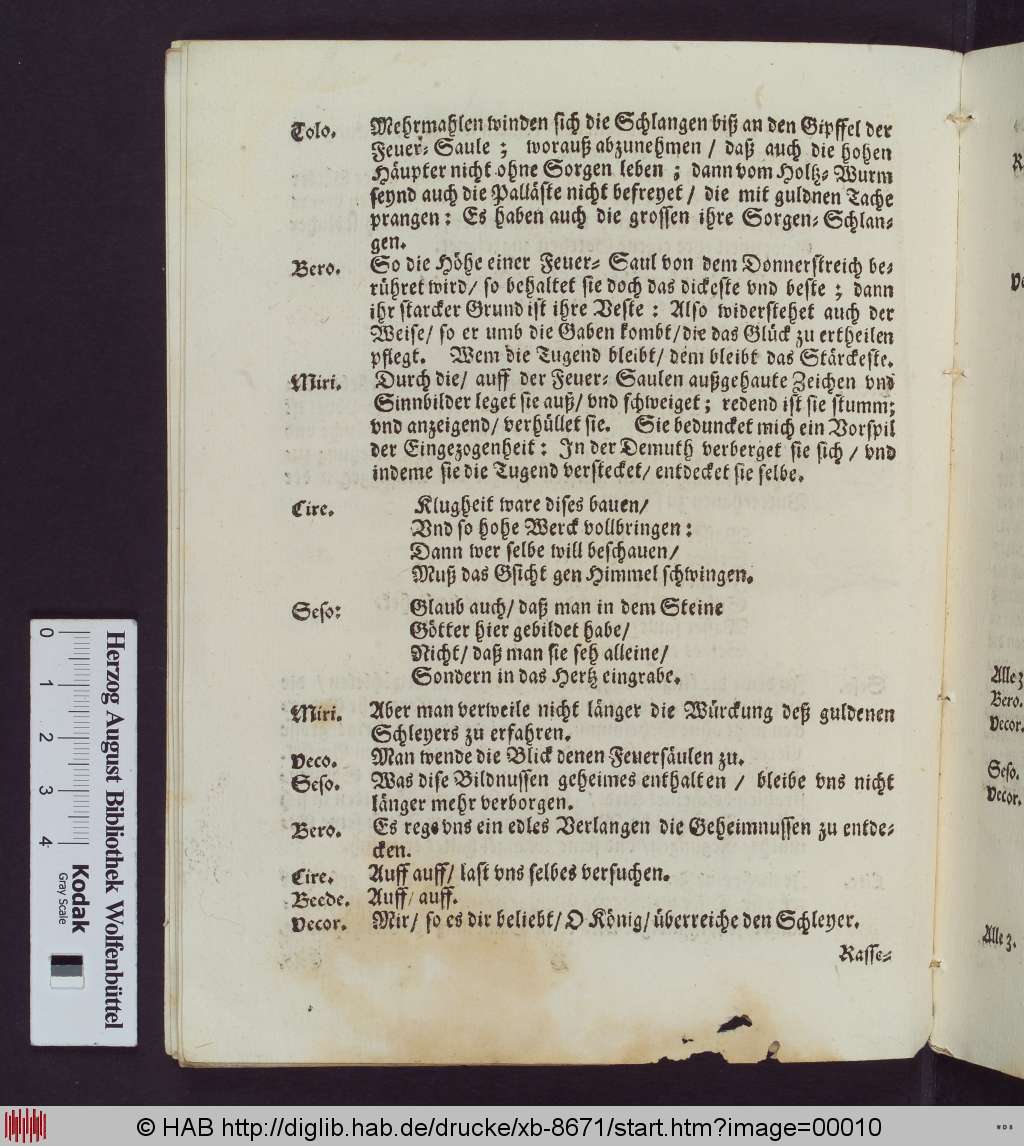 Tolo. Mehrmahlen winden sich die Schlangen biß an den Gipffel der
Feuer-Saule; worauß abzunehmen / daß auch die hohen
Häupter nicht ohne Sorgen leben; dann vom Holtz-Wurm
seynd auch die Palläste nicht befreyet / die mit guldnen Tache
prangen: Es haben auch die grossen ihre Sorgen-Schlan-
gen.
Bero. So die Höhe einer Feuer-Saul von dem Donnerstreich be-
rühret wird/ so behaltet sie doch das dickeste vnd beste; dann
ihr starcker Grund ist ihre Veste: Also widerstehet auch der
Weise/ so er umb die Gaben kombt/ die das Glück zu ertheilen
pflegt. Wem die Tugend bleibt/ dem bleibt das Stärckeste.
Miri. Durch die/ auff der Feuer-Saulen außgehaute Zeichen vnd
Sinnbilder leget sie auß/ vnd schweiget; redend ist sie stumm;
vnd anzeigend/ verhüllet sie. Sie beduncket mich ein Vorspil
der Eingezogenheit: In der Demuth verberget sie sich / vnd
indeme sie die Tugend verstecket/ entdecket sie selbe.
Cire. Klugheit ware dises bauen/
Vnd so hohe Werck vollbringen:
Dann wer selbe will beschauen/
Muß das Gsicht gen Himmel schwingen.
Seso: Glaub auch/ daß man in dem Steine
Götter hier gebildet habe/
Nicht/ daß man sie seh alleine/
Sondern in das Hertz eingrabe.
Miri. Aber man verweile nicht länger die Würckung deß guldenen
Schleyers zu erfahren.
Veco. Man wende die Blick denen Feuersäulen zu.
Seso. Was dise Bildnussen geheimes enthalten / bleibe vns nicht
länger mehr verborgen.
Bero. Es rege vns ein edles Verlangen die Geheimnussen zu entde-
cken.
Cire. Auff auff/ last vns selbes versuchen.
Beede. Auff/ auff.
Vecor. Mir/ so es dir beliebt/ O König/ überreiche den Schleyer.
Rasse-
Alle 3
Bero.
Vecor.
Seso.
Vecor.
Alle 3.
0 1 2 3 4
Herzog August Bibliothek Wolfenbüttel
Kodak
Gray Scale
© HAB http://diglib.hab.de/drucke/xb-8671/start.htm?image=00010